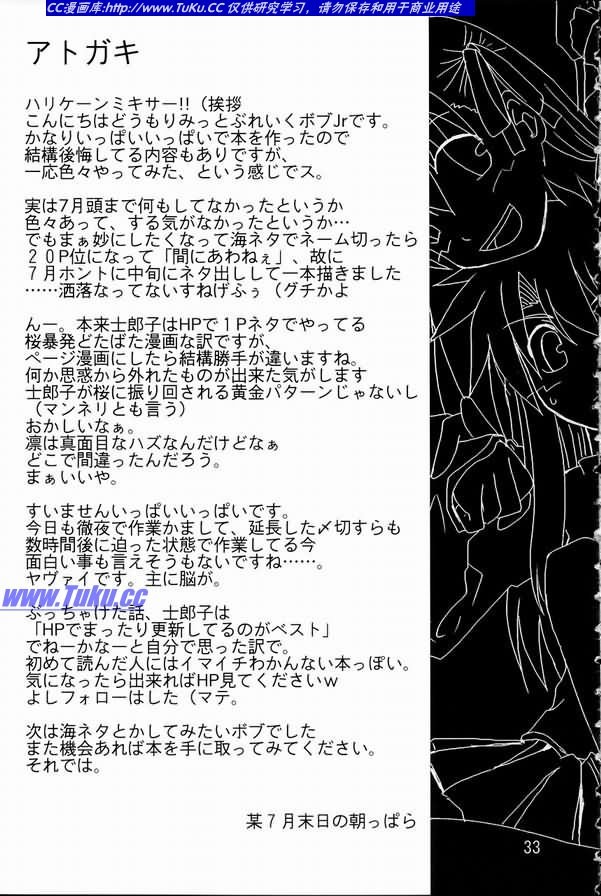 CC漫画库:http://www.TuKu.CC 仅供研究学习，请勿保存和用于商业用途
アトガキ
ハリケーンミキサー!!（挨拶
こんにちはどうもりみっとぶれいくボブJrです。
かなりいっぱいいっぱいで本を作ったので
結構後悔してる内容もありですが、
一応色々やってみた、という感じでス。
実は7月頭まで何もしてなかったというか
色々あって、する気がなかったというか…
でもまぁ妙にしたくなって海ネタでネーム切ったら
２０P位になって「間にあわねぇ」、故に
７月ホントに中旬にネタ出しして一本描きました
……洒落なってないすねげふぅ（グチかよ
んー。本来士郎子はHPで１Pネタでやってる
桜暴発どたばた漫画な訳ですが、
ページ漫画にしたら結構勝手が違いますね。
何か思惑から外れたものが出来た気がします
士郎子が桜に振り回される黄金パターンじゃないし
（マンネリとも言う）
おかしいなぁ。
凛は真面目なハズなんだけどなぁ
どこで間違ったんだろう。
まぁいいや。
すいませんいっぱいいっぱいです。
今日も徹夜で作業かまして、延長した〆切すらも
数時間後に迫った状態で作業してる今
面白い事も言えそうもないですね……。
ヤヴァイです。主に脳が。
www.Tuku.cc
ぶっちゃけた話、士郎子は
「HPでまったり更新してるのがベスト」
でねーかなーと自分で思った訳で。
初めて読んだ人にはイマイチわかんない本っぽい。
気になったら出来ればHP見てくださいｗ
よしフォローはした（マテ。
次は海ネタとかしてみたいボブでした
また機会あれば本を手に取ってみてください。
それでは。
某７月末日の朝っぱら
33